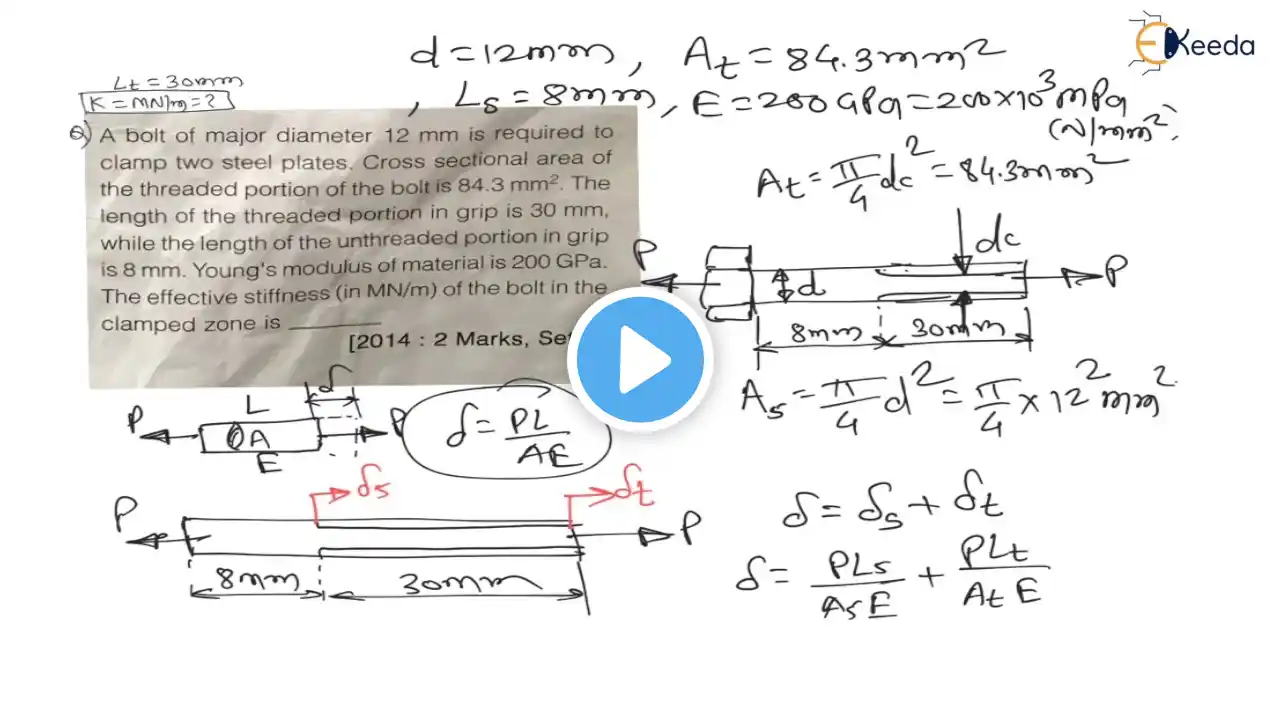 Keeda
d = 12mm, At = 84.3mm²
Lt = 30mm
K = MN/m = ?
, Ls = 8mm, E = 200GPa = 200×10³ MPa
(N/mm²)
Q) A bolt of major diameter 12 mm is required to
clamp two steel plates. Cross sectional area of
the threaded portion of the bolt is 84.3 mm². The
length of the threaded portion in grip is 30 mm,
while the length of the unthreaded portion in grip
is 8 mm. Young's modulus of material is 200 GPa.
The effective stiffness (in MN/m) of the bolt in the
clamped zone is ________
[2014 : 2 Marks, Se
At = π/4 dc² = 84.3mm²
dc
P d P
8mm 30mm
As = π/4 d² = π/4 × 12² mm²
δ
L
P A P
E
δ = PL/AE
δs δt
P P
8mm 30mm
δ = δs + δt
δ = PLs/AsE + PLt/AtE